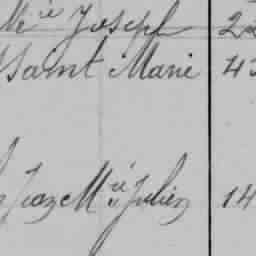 Mie Joseph 22
Saint Marie 43
Jean Mie Julien 14